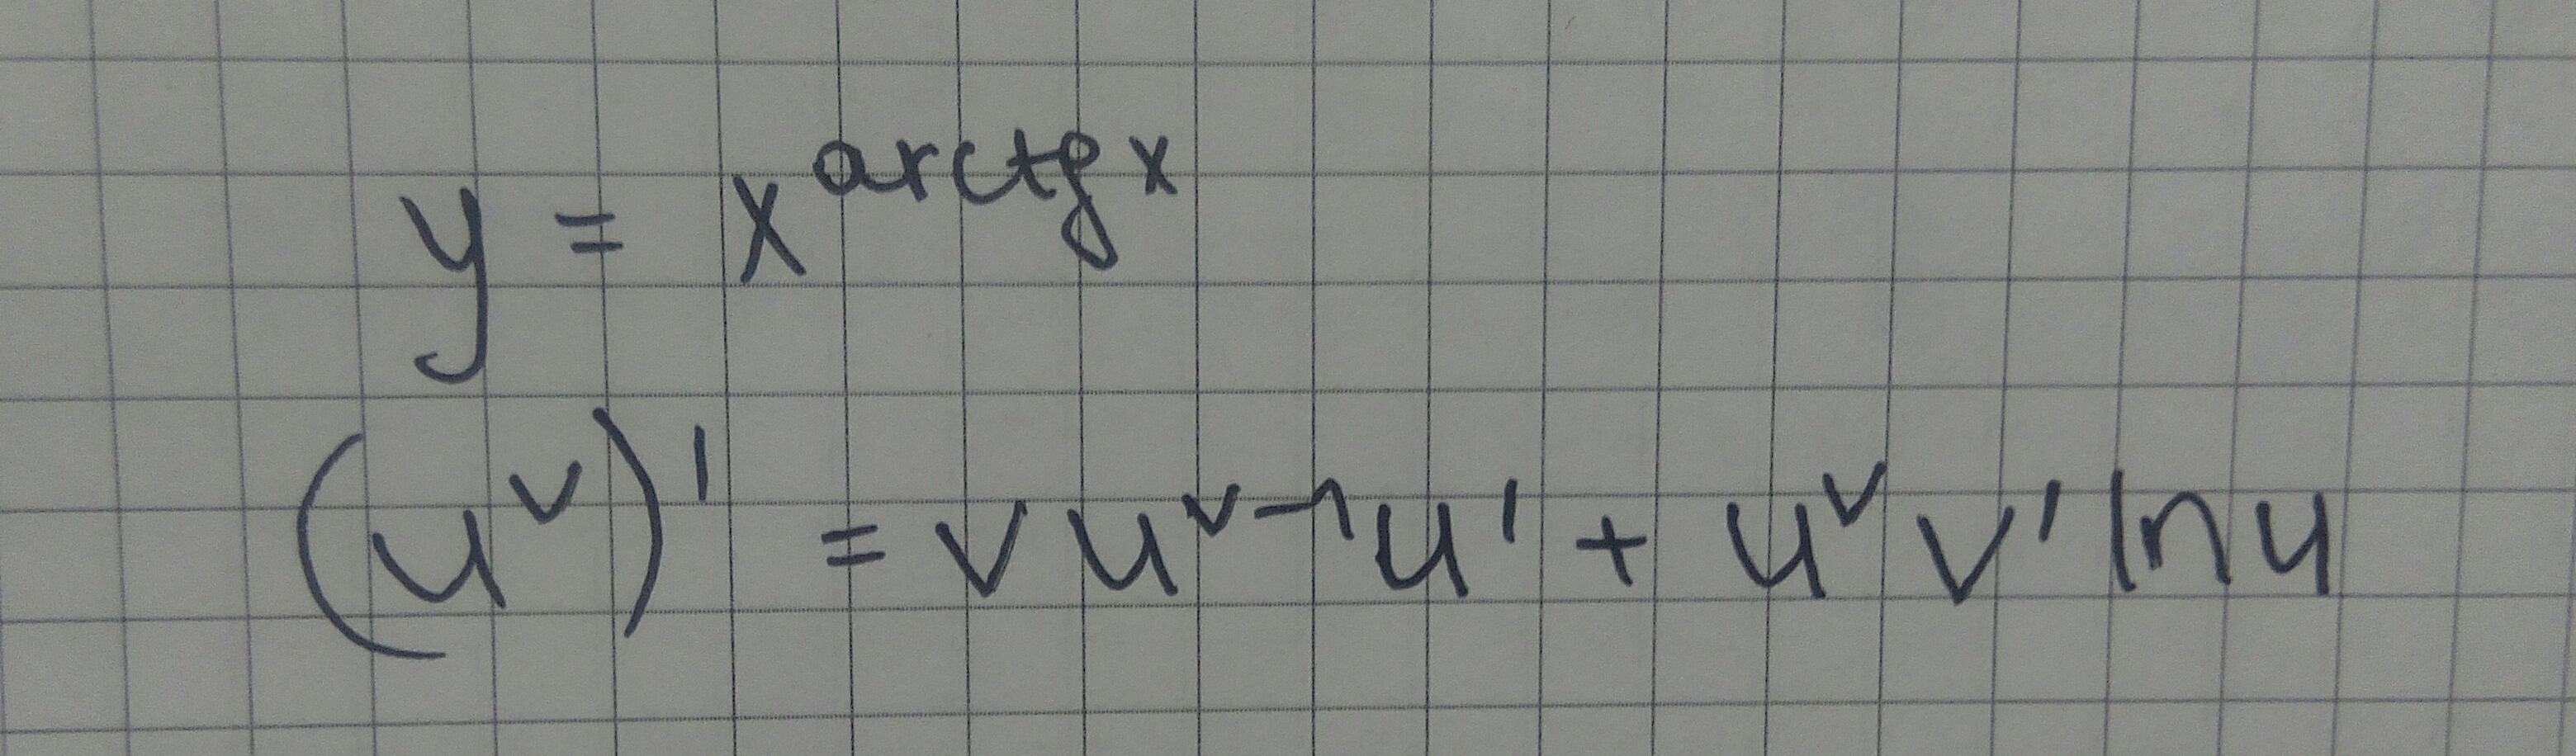 y = x^arctg x
(u^v)' = v u^(v-1) u' + u^v v' ln u